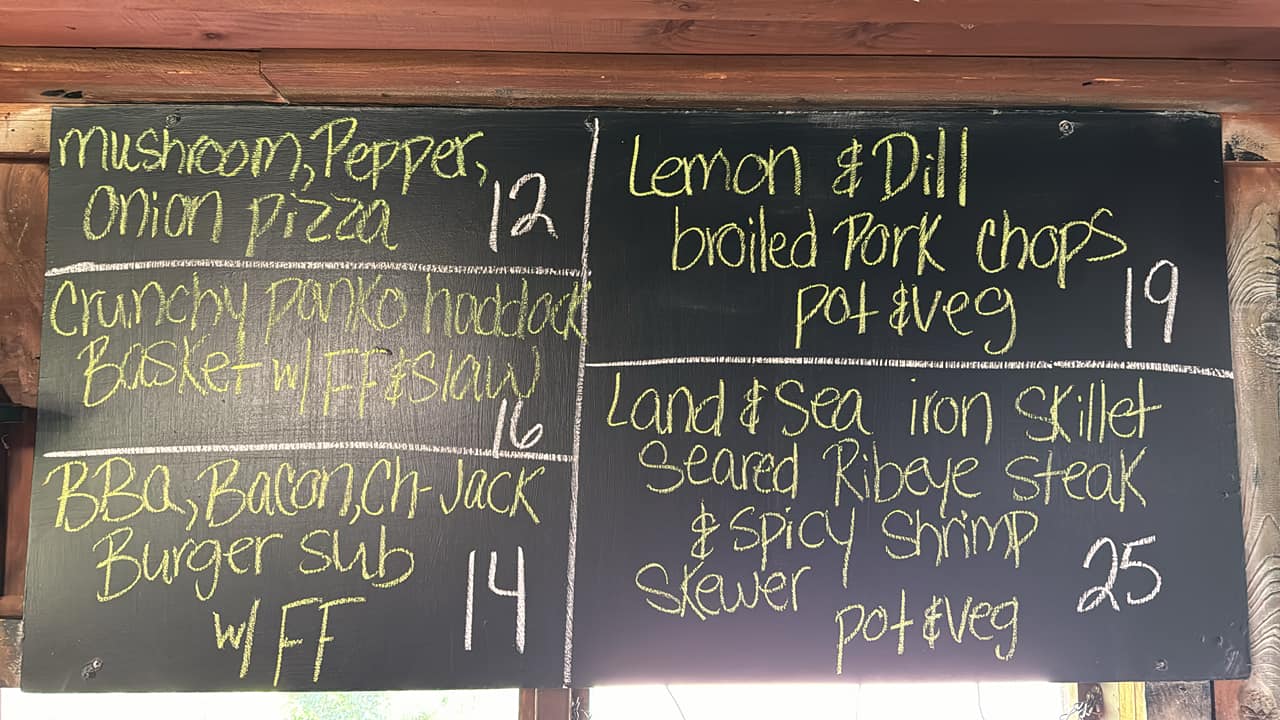 mushroom, Pepper,
onion pizza
12
Crunchy panko haddock
Basket w/ FF & slaw
16
BBQ, Bacon, Ch-Jack
Burger sub
14
w/ FF
Lemon & Dill
broiled Pork chops
pot & veg
19
Land & Sea iron skillet
Seared Ribeye steak
& spicy shrimp
skewer
25
pot & veg